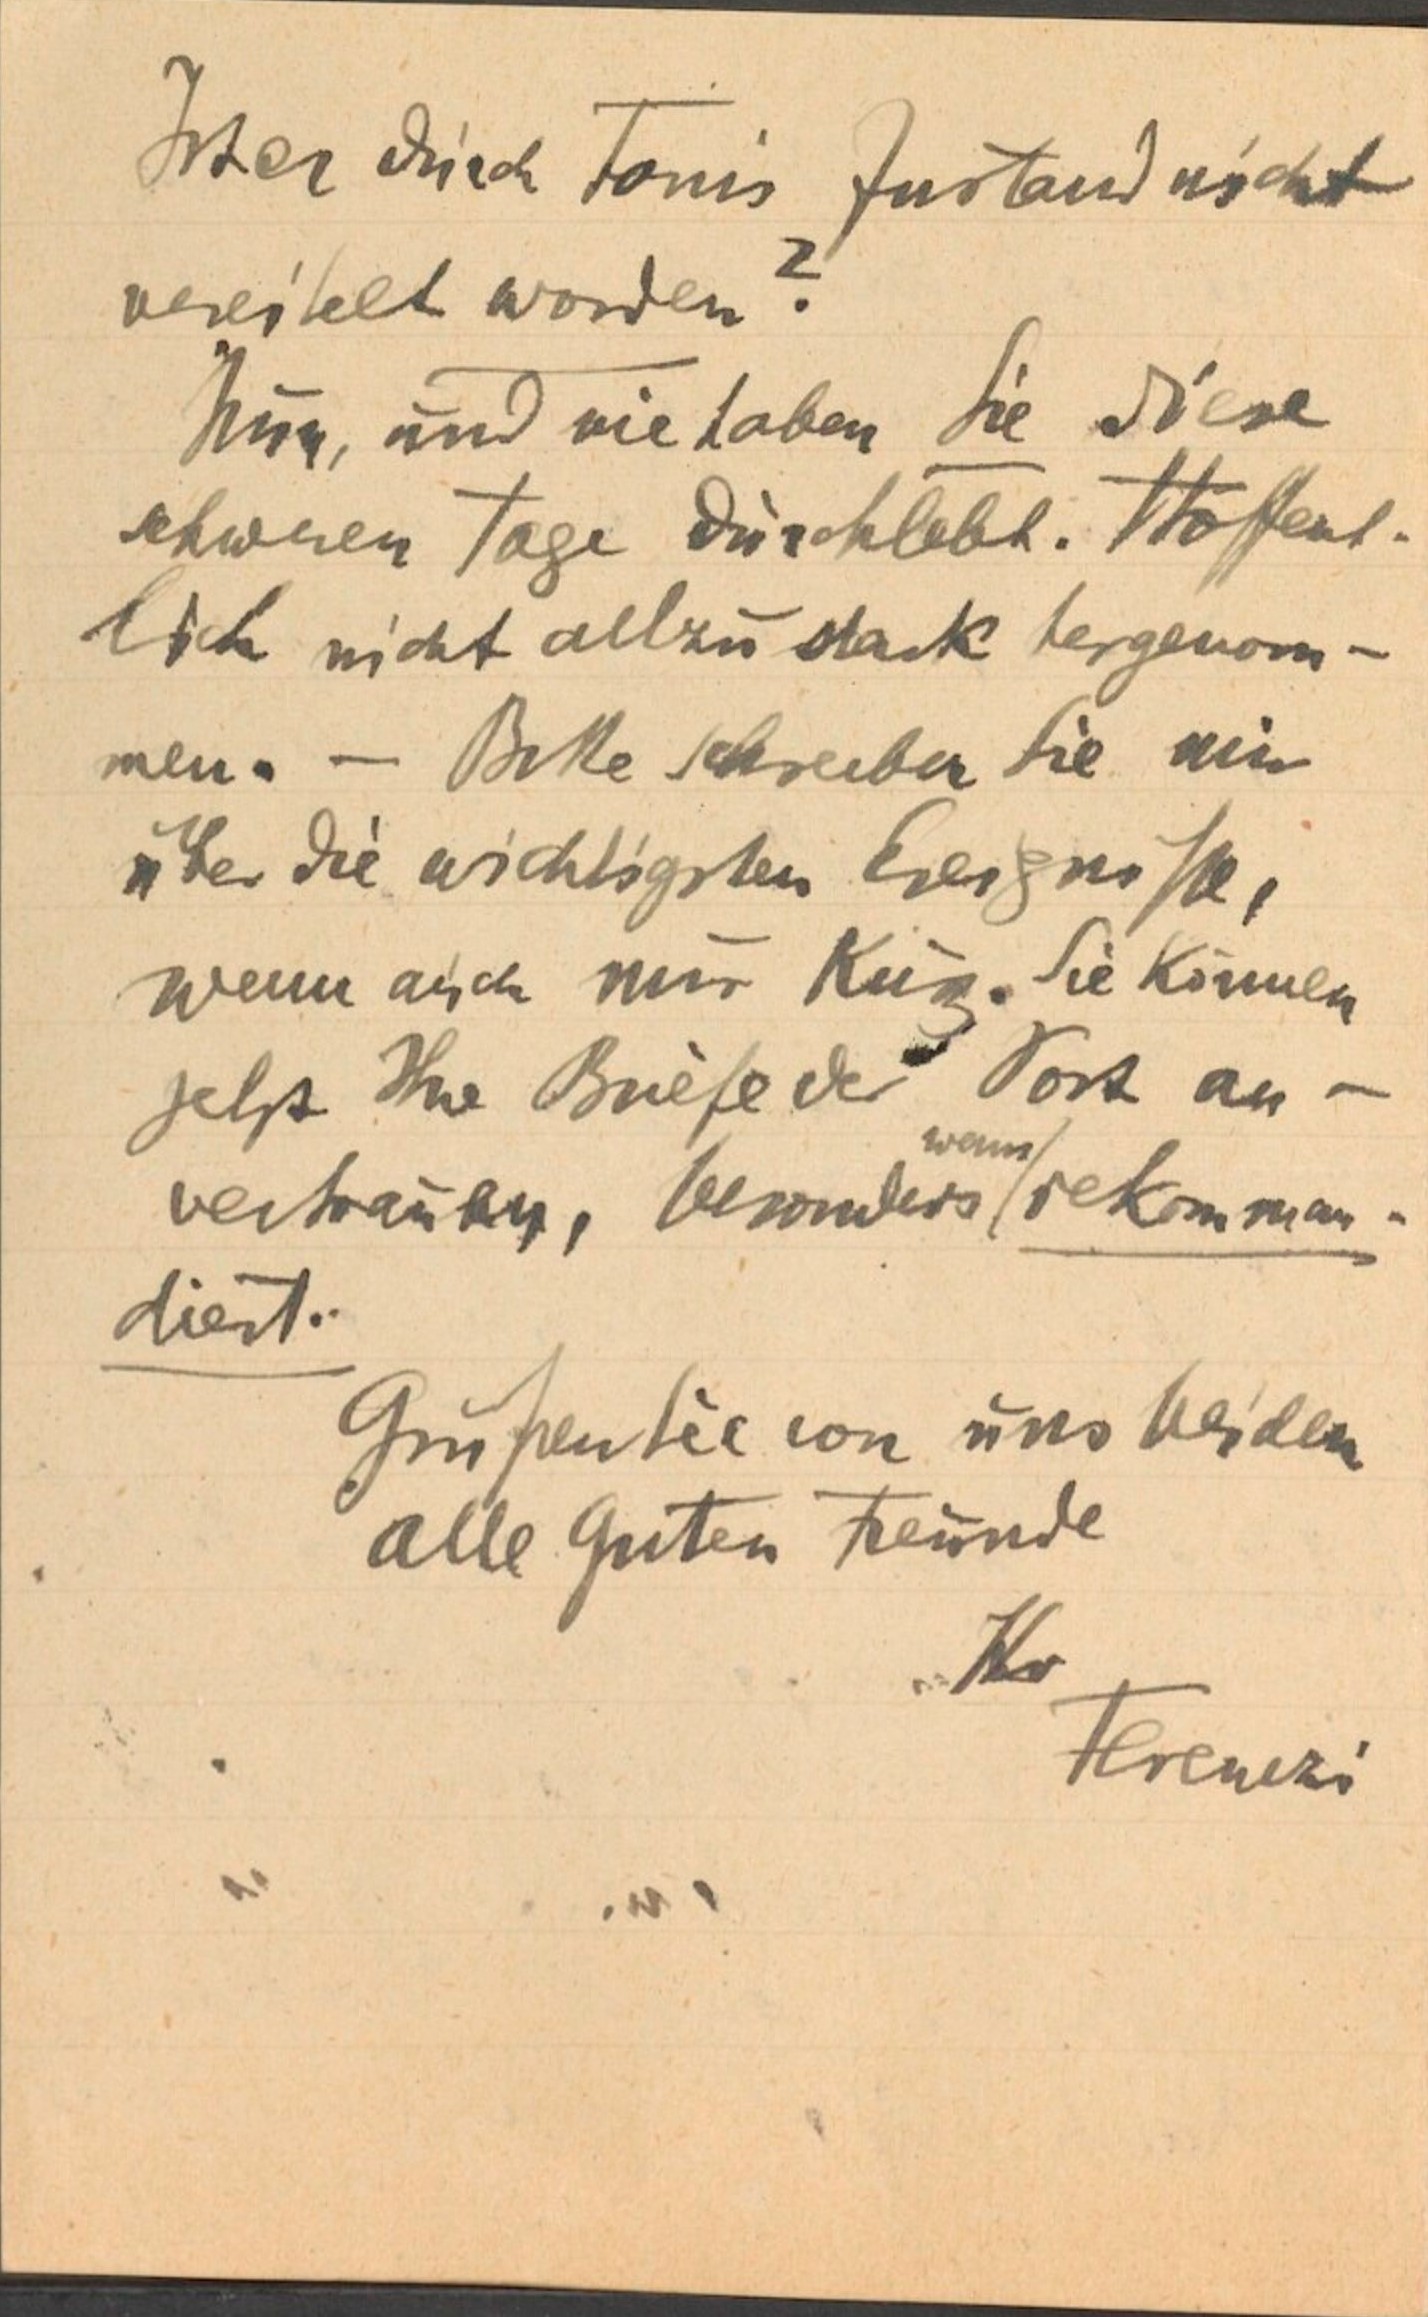 Ist er durch Tonis Zustand nicht
vereitelt worden?
Nun, und wie haben Sie diese
schweren Tage durchlebt. Hoffent-
lich nicht allzu stark hergenom-
men. — Bitte schreiben Sie mir
über die wichtigsten Ereignisse,
wenn auch nur kurz. Sie können
jetzt Ihre Briefe der Post an-
vertrauen, besonders wenn rekomman-
diert.
Grüßen Sie von uns beiden
alle guten Freunde
Ihr
Ferenczi